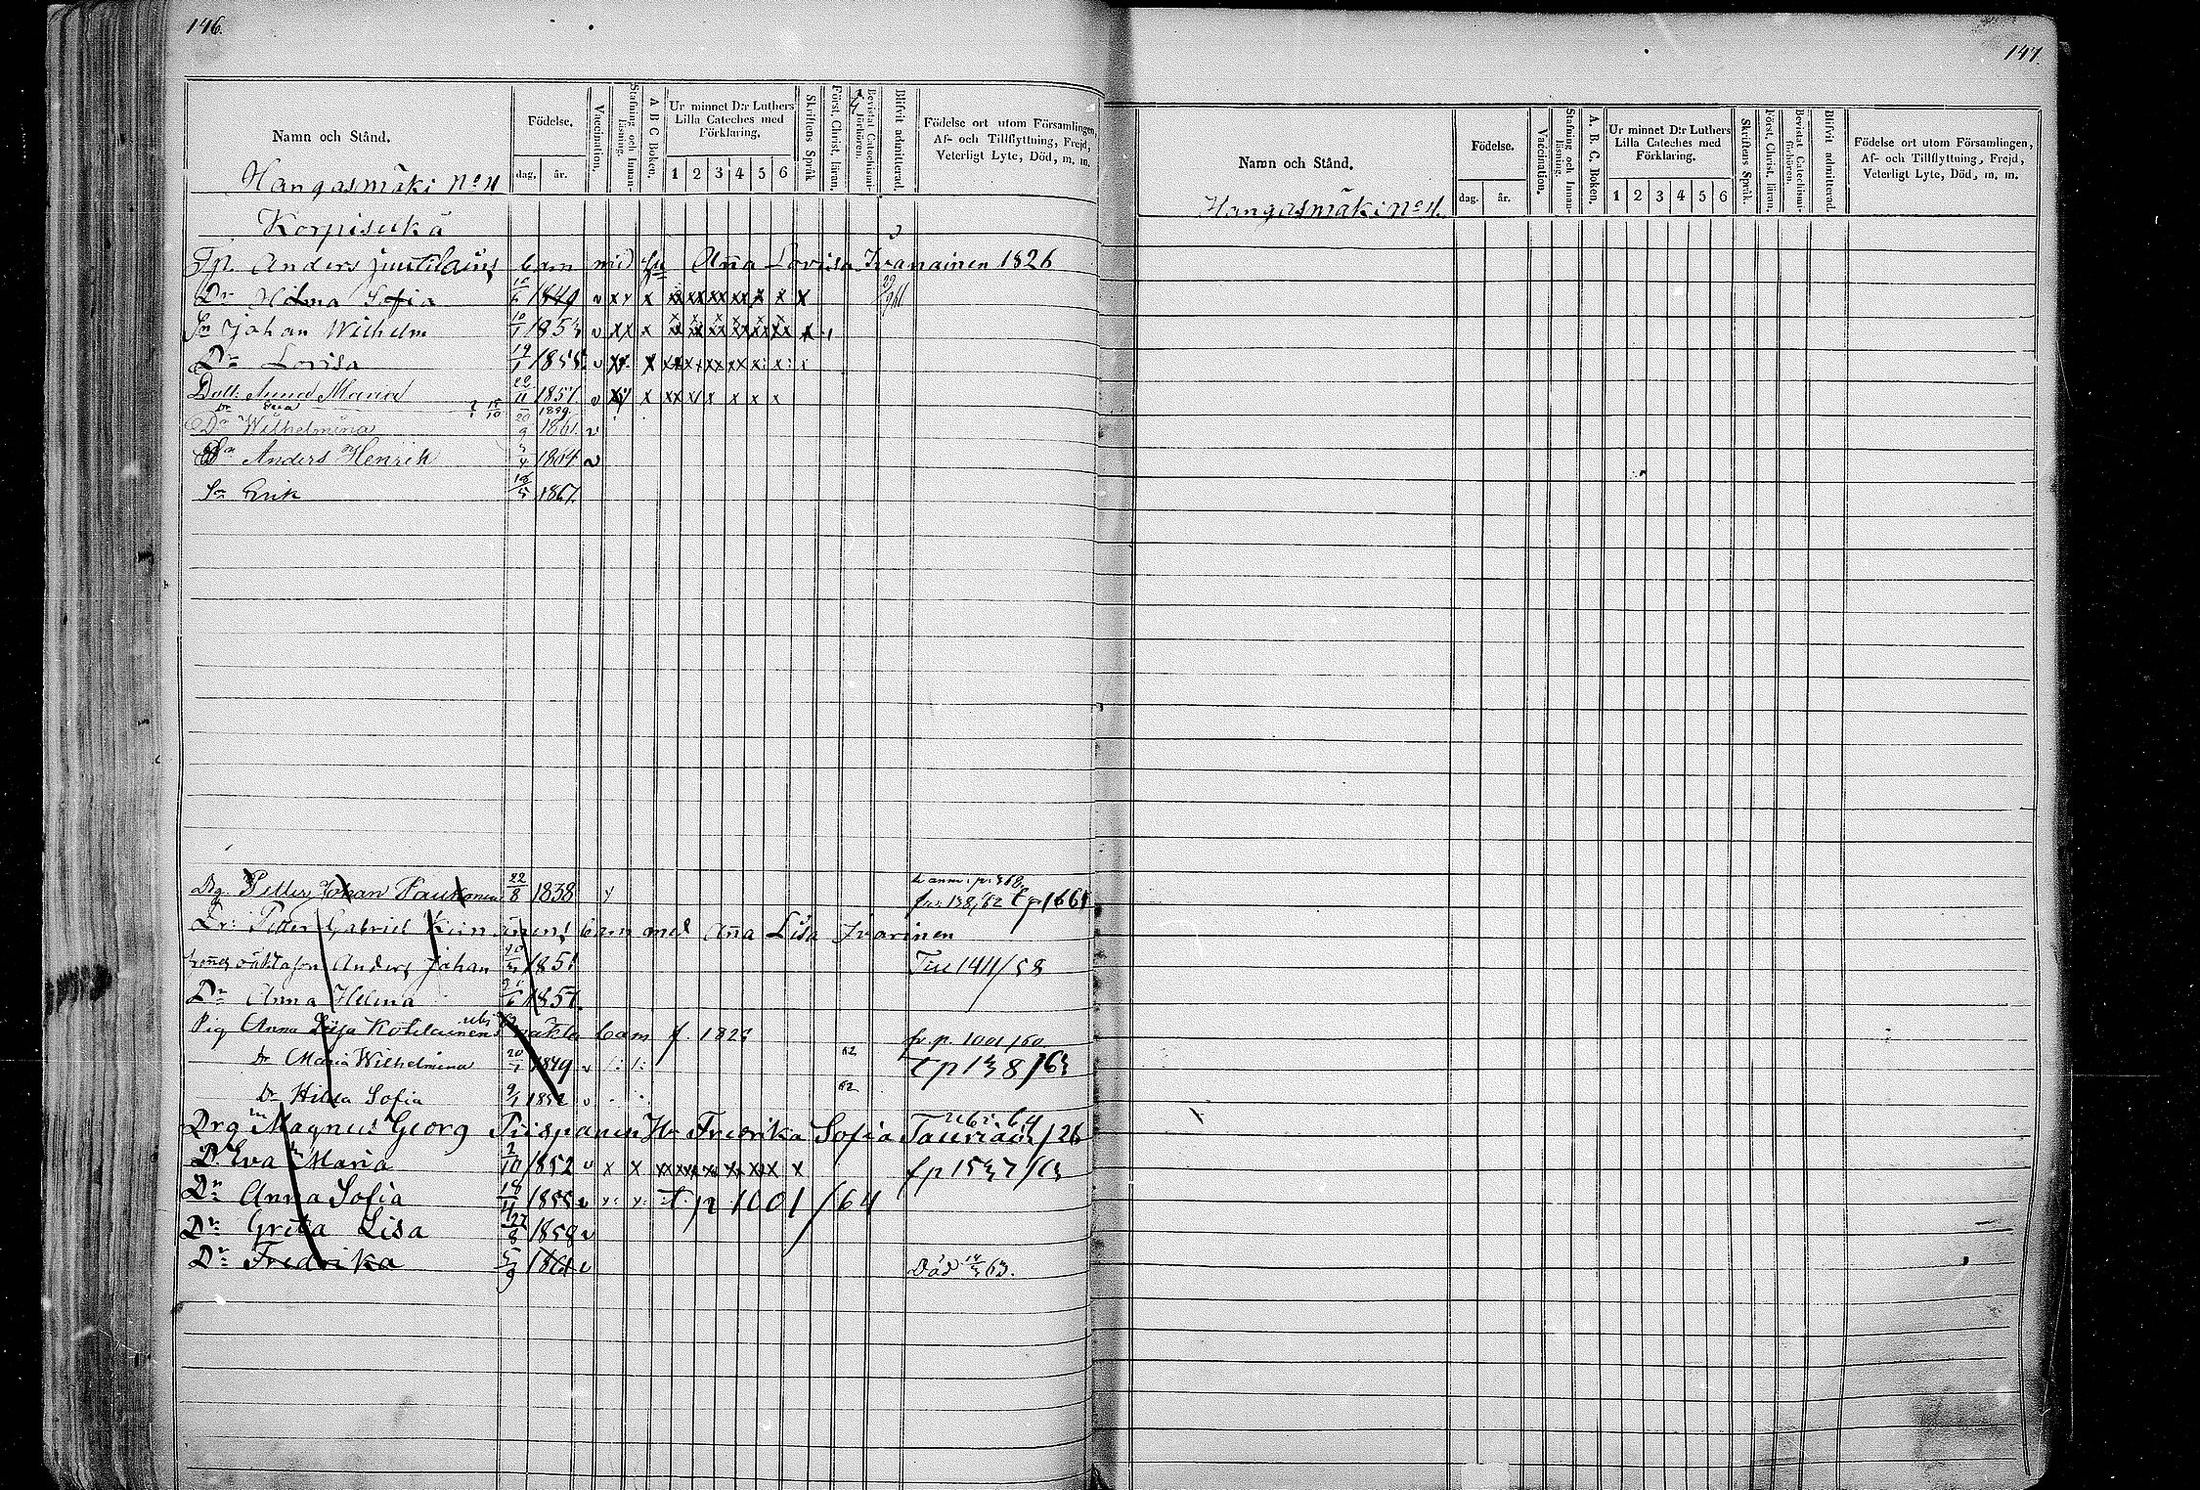 146.
Namn och Stånd.
Födelse.
dag, år.
Vaccination.
Stafning och Innanläsning.
A B C Boken.
Ur minnet D:r Luthers Lilla Cateches med Förklaring.
1 2 3 4 5 6
Skriftens Språk
Först. Christ. läran.
Bevistat Catechismiförhören.
Blifvit admitterad.
Födelse ort utom Församlingen, Af- och Tillflyttning, Frejd, Veterligt Lyte, Död, m. m.
Hangasmäki No 4
Korpisukä
Tp. Anders Juutilains barn med hu Aña Lovisa Ivanainen 1826
Dr Hilma Sofia 1849 v x x x
Sn Johan Wilhelm 1853 v x x x
Dr Lovisa 19/1 1855 v
Dott. Anna Maria 22/11 1857 v
Dr Wilhelmina 20/9 1861 v
Sn Anders Henrik 1864 v
Sn Erik 1867
Drg. Petter Johan Paukonen 22/8 1838
fr. 138/62 t p 166
Dr: Petter Gabriel barn med Aña Lisa Ivarinen
Anders Johan 185
Till 1411/58
Dr Anna Helena 1857
Pig Anna Lisa Kotilainens oäkta barn f. 182
fr. p. 1001/60
Dr Maria Wilhelmina 20/1 1849 v
62
t p 138/63
Dr Hilda Sofia 9/1 1852 v
62
Drg Magnus Georg Piispanen Hu Fredrika Sofia Tauriain/26
ubi. 64
Dr Eva Maria 2/10 1852 v x x
fp 1537/63
Dr Anna Sofia 18/4 1855 v t. p 1001/64
Dr Greta Lisa 27/8 1858 v
Dr Fredrika 5/9 1861 v
Död 14/3 63.
147.
Namn och Stånd.
Födelse.
dag. år.
Vaccination.
Stafning och Innanläsning.
A. B. C. Boken.
Ur minnet D:r Luthers Lilla Cateches med Förklaring.
1 2 3 4 5 6
Skriftens Språk.
Först. Christ. läran.
Bevistat Catechismiförhören.
Blifvit admitterad.
Födelse ort utom Församlingen, Af- och Tillflyttning, Frejd, Veterligt Lyte, Död, m. m.
Hangasmäki No 4.